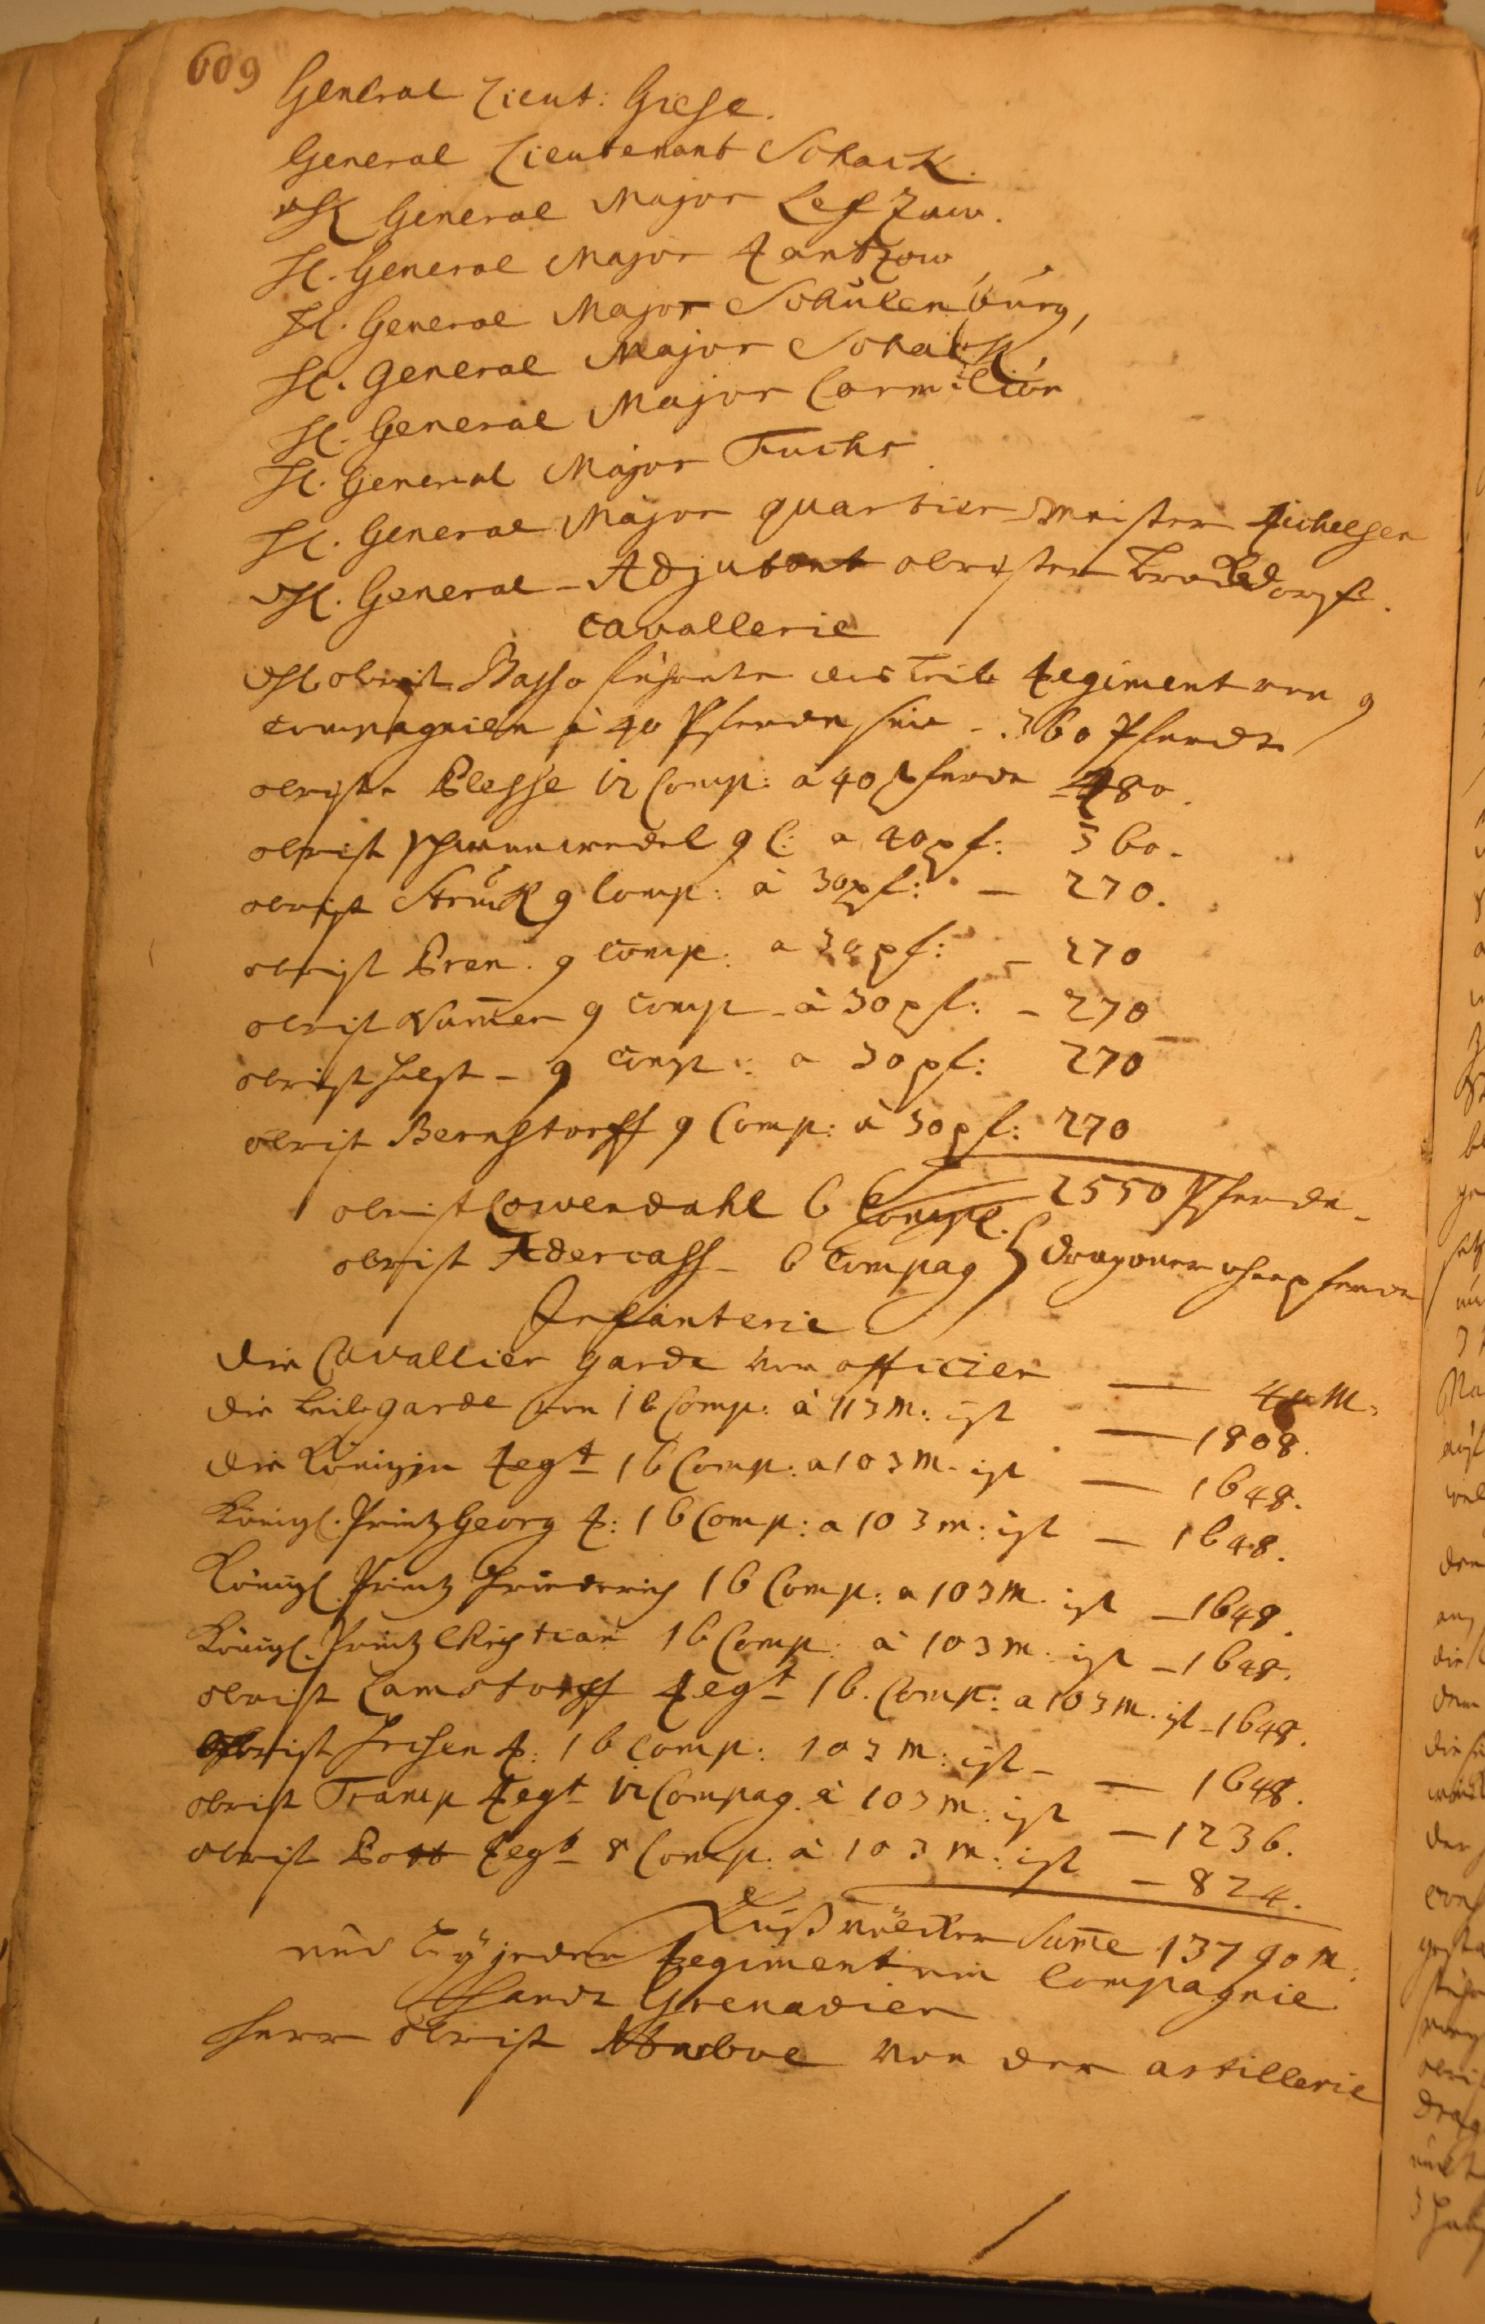 609
General Lieut: Giese.
General Lieutenant Schack.
H General Major Leschzaw.
H. General Major Rantzow
H. General Major Schulenburg,
H. General Major Schack,
H. General Major Carmilion
H. General Major Fuchs
H. General Major quartier-Meister
H. General-Adjutant obrister Brockdorff.
Cavallerie
H obrist Basso das Leib Regiment von 9
Compagnien à 40 Pferden sein - 360 Pferde
obriste Plesse 12 Comp: a 40 Pferde 480.
obrist Schwanewedel 9 C: a 40 pf: 360.
obrist Struck 9 Comp: à 30 pf: — 270.
obrist Pren. 9 Comp: a 30 pf: — 270
obrist Rumer 9 Comp - à 30 pf: - 270
obrist Holst - 9 Comp: a 30 pf: 270
obrist Bernstorff 9 Comp: à 30 pf: 270
2550 Pferde
obrist Lowendahl 6 Comp.
obrist Adercass - 6 Compag } Dragoner ohne Pferde
Infanterie
Die Cavallier Garde von officier — M:
Die Leibgarde von 16 Comp: à 113 M: ist — 1808.
Die Königin Regt 16 Comp: a 103 M. ist — 1648.
Königl. Printz Georg R: 16 Comp: a 103 m: ist — 1648.
Königl. Printz Friederich 16 Comp: a 103 M. ist — 1648.
Königl. Printz Christian 16 Comp: à 103 m: ist — 1648.
obrist Lamstorff Regt 16. Comp: a 103 m. ist - 1648.
obrist R: 16 Comp: 103 m: ist — 1648.
obrist Tramp Regt 12 Compag. à 103 m: ist — 1236.
obrist Pott Regt 8 Comp: à 103 m: ist — 824.
Fußvölcker Sume 13790 M:
und bey jeden Regiment ein Compagnie
Handt Grenadier
Herr obrist von der artillerie